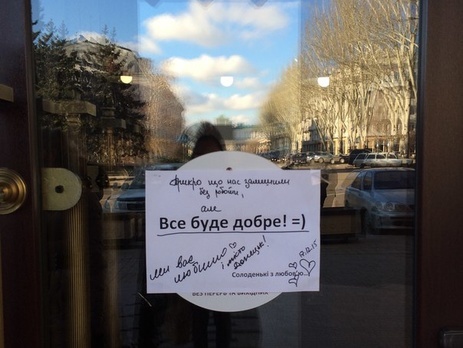 Прикро що нас залишили
без роботи,
але
Все буде добре! =)
ми вас
любимо і місто
Донецьк!
7.12.15
Солоденькі з любов'ю...
БЕЗ ПЕРЕРВ ТА ВИХІДНИХ